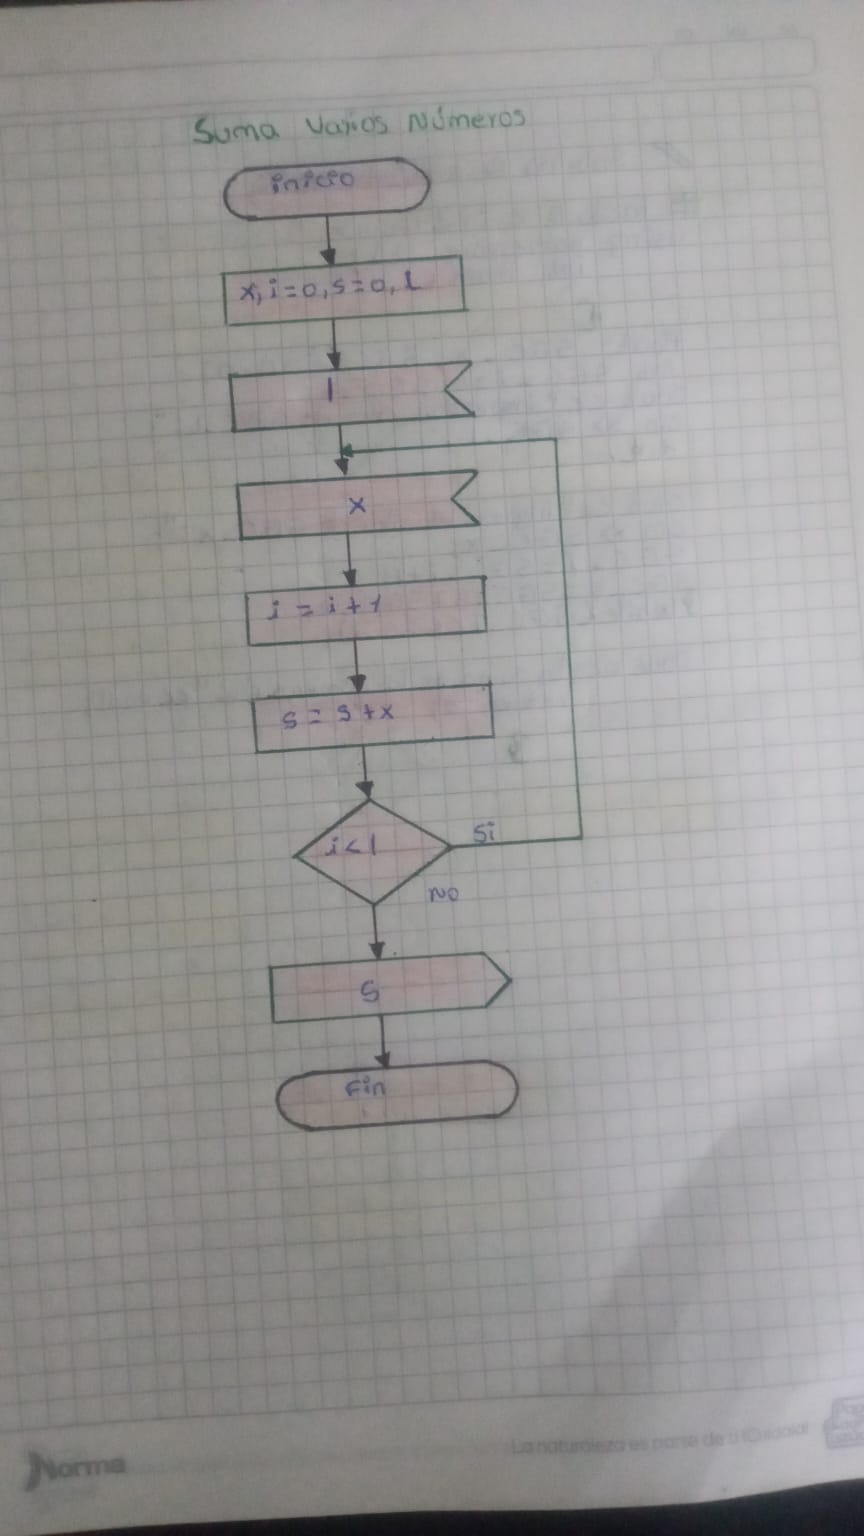 Suma Varios Números
inicio
x, i=0, s=0, l
l
x
i = i+1
s = s+x
i<l
Si
NO
S
Fin
Norma
La naturaleza es parte de ti ¡Cuídala!